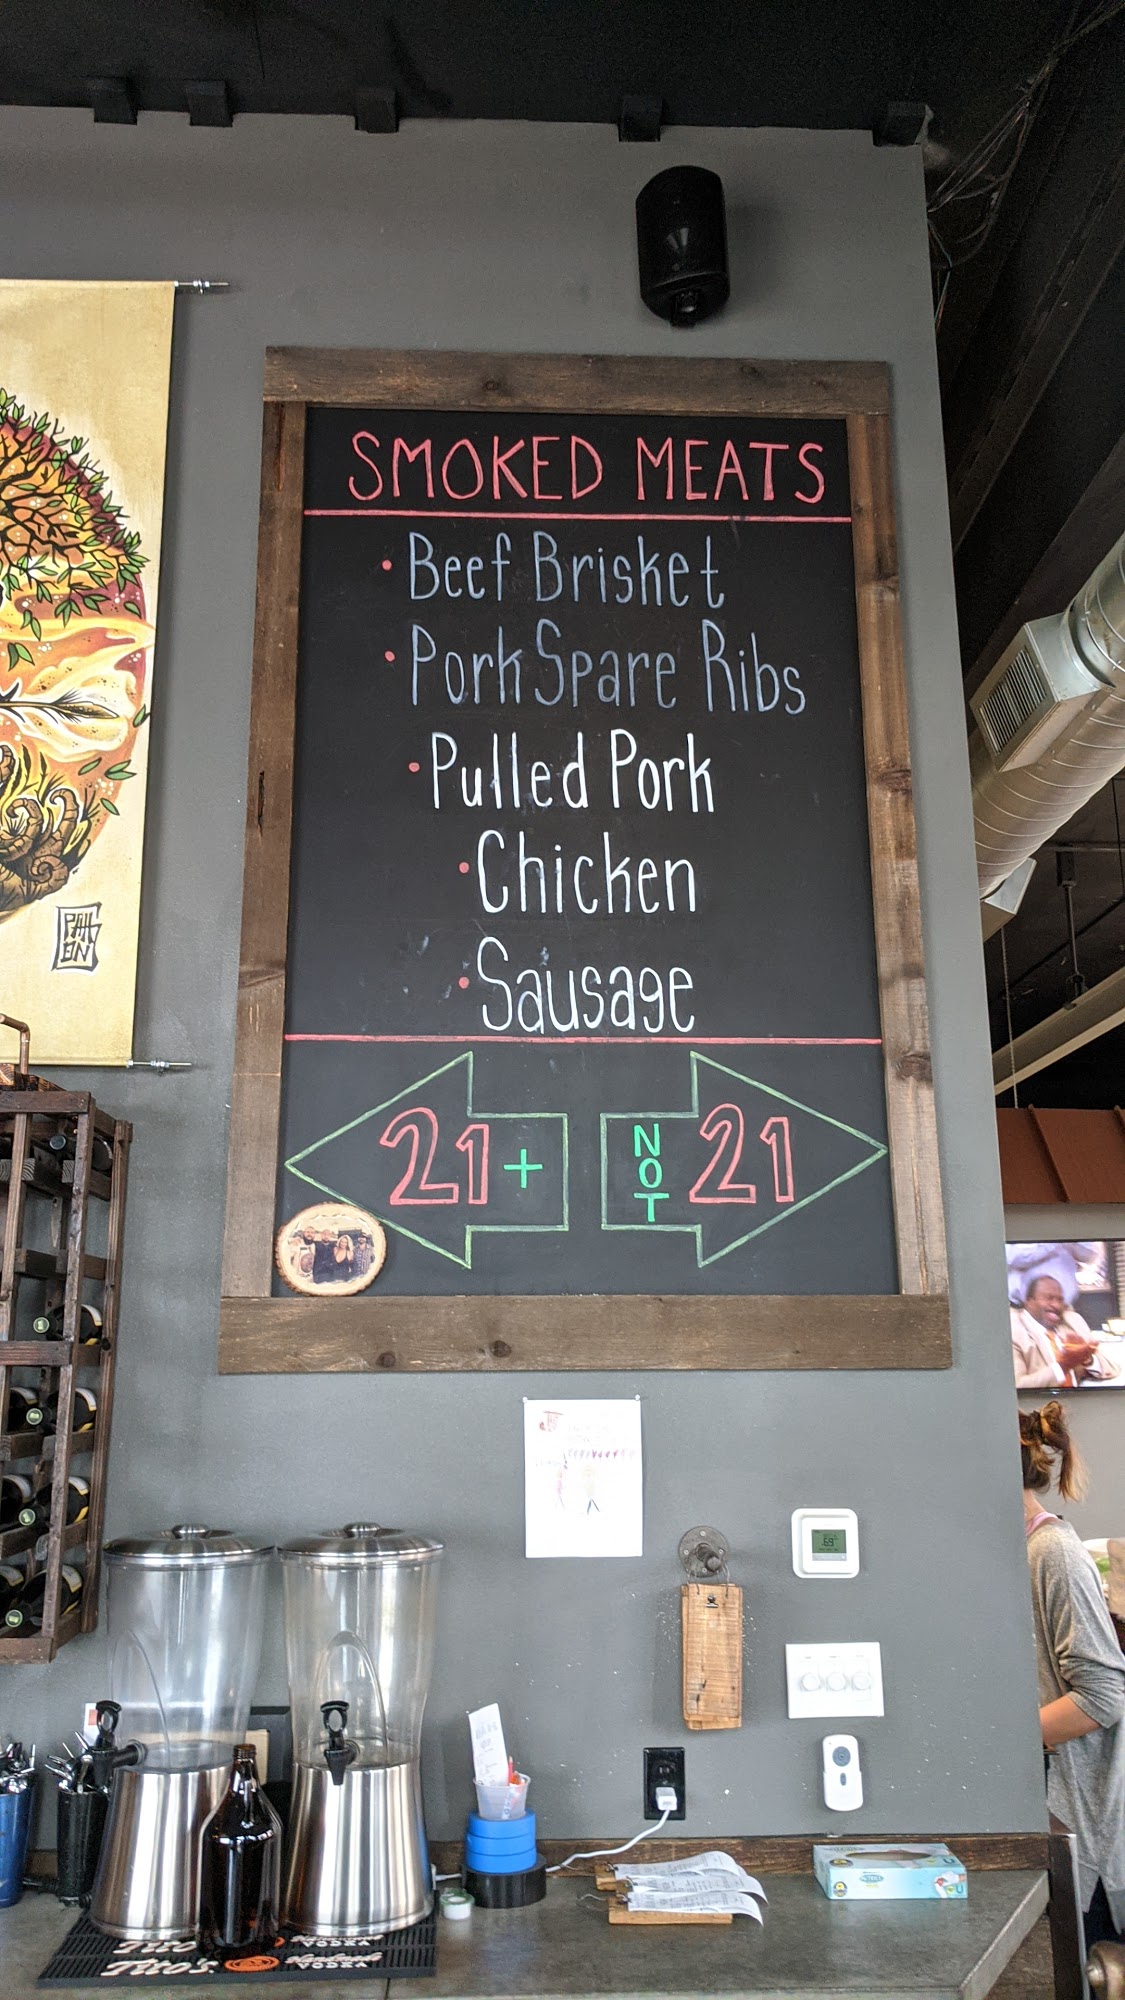 SMOKED MEATS
• Beef Brisket
• Pork Spare Ribs
• Pulled Pork
• Chicken
• Sausage
21+
NOT 21
69
Tito's
Handmade
VODKA
Tito's
Handmade
VODKA